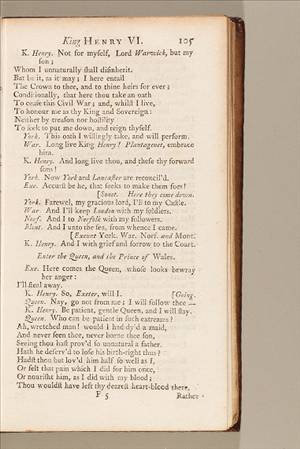 King HENRY VI. 105
K. Henry. Not for myself, Lord Warwick, but my
son;
Whom I unnaturally shall disinherit.
But be it, as it may; I here entail
The Crown to thee, and to thine heirs for ever;
Conditionally, that here thou take an oath
To cease this Civil War; and, whilst I live,
To honour me as thy King and Sovereign:
Neither by treason nor hostility
To seek to put me down, and reign thyself.
York. This oath I willingly take, and will perform.
War. Long live King Henry! Plantagenet, embrace
him.
K. Henry. And long live thou, and these thy forward
sons!
York. Now York and Lancaster are reconcil'd.
Exe. Accurst be he, that seeks to make them foes!
[Sonet. Here they come down.
York. Farewel, my gracious lord, I'll to my Castle.
War. And I'll keep London with my soldiers.
Norf. And I to Norfolk with my followers.
Mont. And I unto the sea, from whence I came.
[Exeunt York. War. Norf. and Mont.
K. Henry. And I with grief and sorrow to the Court.
Enter the Queen, and the Prince of Wales.
Exe. Here comes the Queen, whose looks bewray
her anger:
I'll steal away.
K. Henry. So, Exeter, will I. [Going.
Queen. Nay, go not from me; I will follow thee.
K. Henry. Be patient, gentle Queen, and I will stay.
Queen. Who can be patient in such extreams?
Ah, wretched man! would I had dy'd a maid,
And never seen thee, never borne thee son,
Seeing thou hast prov'd so unnatural a father.
Hath he deserv'd to lose his birth-right thus?
Hadst thou but lov'd him half so well as I,
Or felt that pain which I did for him once,
Or nourisht him, as I did with my blood;
Thou wouldst have left thy dearest heart-blood there,
F 5 Rather